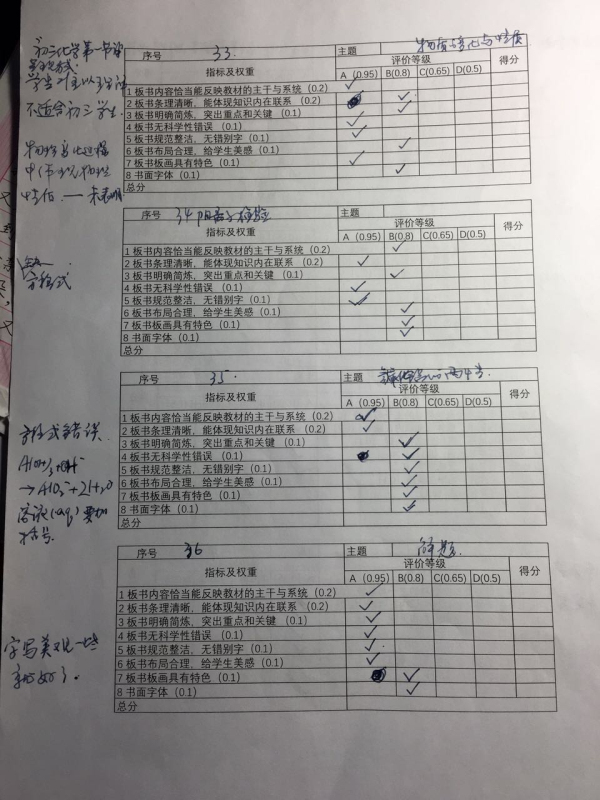 初三化学第一节课
不适合初三学生.
序号 33. 主题 物质变化与性质
指标及权重 评价等级 得分
A（0.95） B(0.8) C(0.65) D(0.5)
1 板书内容恰当能反映教材的主干与系统（0.2） ✓
2 板书条理清晰，能体现知识内在联系（0.2） ✓
3 板书明确简炼，突出重点和关键（0.1） ✓
4 板书无科学性错误（0.1） ✓
5 板书规范整洁，无错别字（0.1） ✓
6 板书布局合理，给学生美感（0.1） ✓
7 板书板画具有特色（0.1） ✓
8 书面字体（0.1） ✓
总分
方程式
序号 34 阳离子检验 主题
指标及权重 评价等级 得分
A（0.95） B(0.8) C(0.65) D(0.5)
1 板书内容恰当能反映教材的主干与系统（0.2） ✓
2 板书条理清晰，能体现知识内在联系（0.2） ✓
3 板书明确简炼，突出重点和关键（0.1） ✓
4 板书无科学性错误（0.1） ✓
5 板书规范整洁，无错别字（0.1） ✓
6 板书布局合理，给学生美感（0.1） ✓
7 板书板画具有特色（0.1） ✓
8 书面字体（0.1） ✓
总分
方程式错误
要加
括号.
序号 35. 主题
指标及权重 评价等级 得分
A（0.95） B(0.8) C(0.65) D(0.5)
1 板书内容恰当能反映教材的主干与系统（0.2） ✓
2 板书条理清晰，能体现知识内在联系（0.2） ✓
3 板书明确简炼，突出重点和关键（0.1） ✓
4 板书无科学性错误（0.1） ✓
5 板书规范整洁，无错别字（0.1） ✓
6 板书布局合理，给学生美感（0.1） ✓
7 板书板画具有特色（0.1） ✓
8 书面字体（0.1） ✓
总分
字写美观一些
就好了.
序号 36 主题 解题.
指标及权重 评价等级 得分
A（0.95） B(0.8) C(0.65) D(0.5)
1 板书内容恰当能反映教材的主干与系统（0.2） ✓
2 板书条理清晰，能体现知识内在联系（0.2） ✓
3 板书明确简炼，突出重点和关键（0.1） ✓
4 板书无科学性错误（0.1） ✓
5 板书规范整洁，无错别字（0.1） ✓
6 板书布局合理，给学生美感（0.1） ✓
7 板书板画具有特色（0.1） ✓
8 书面字体（0.1） ✓
总分